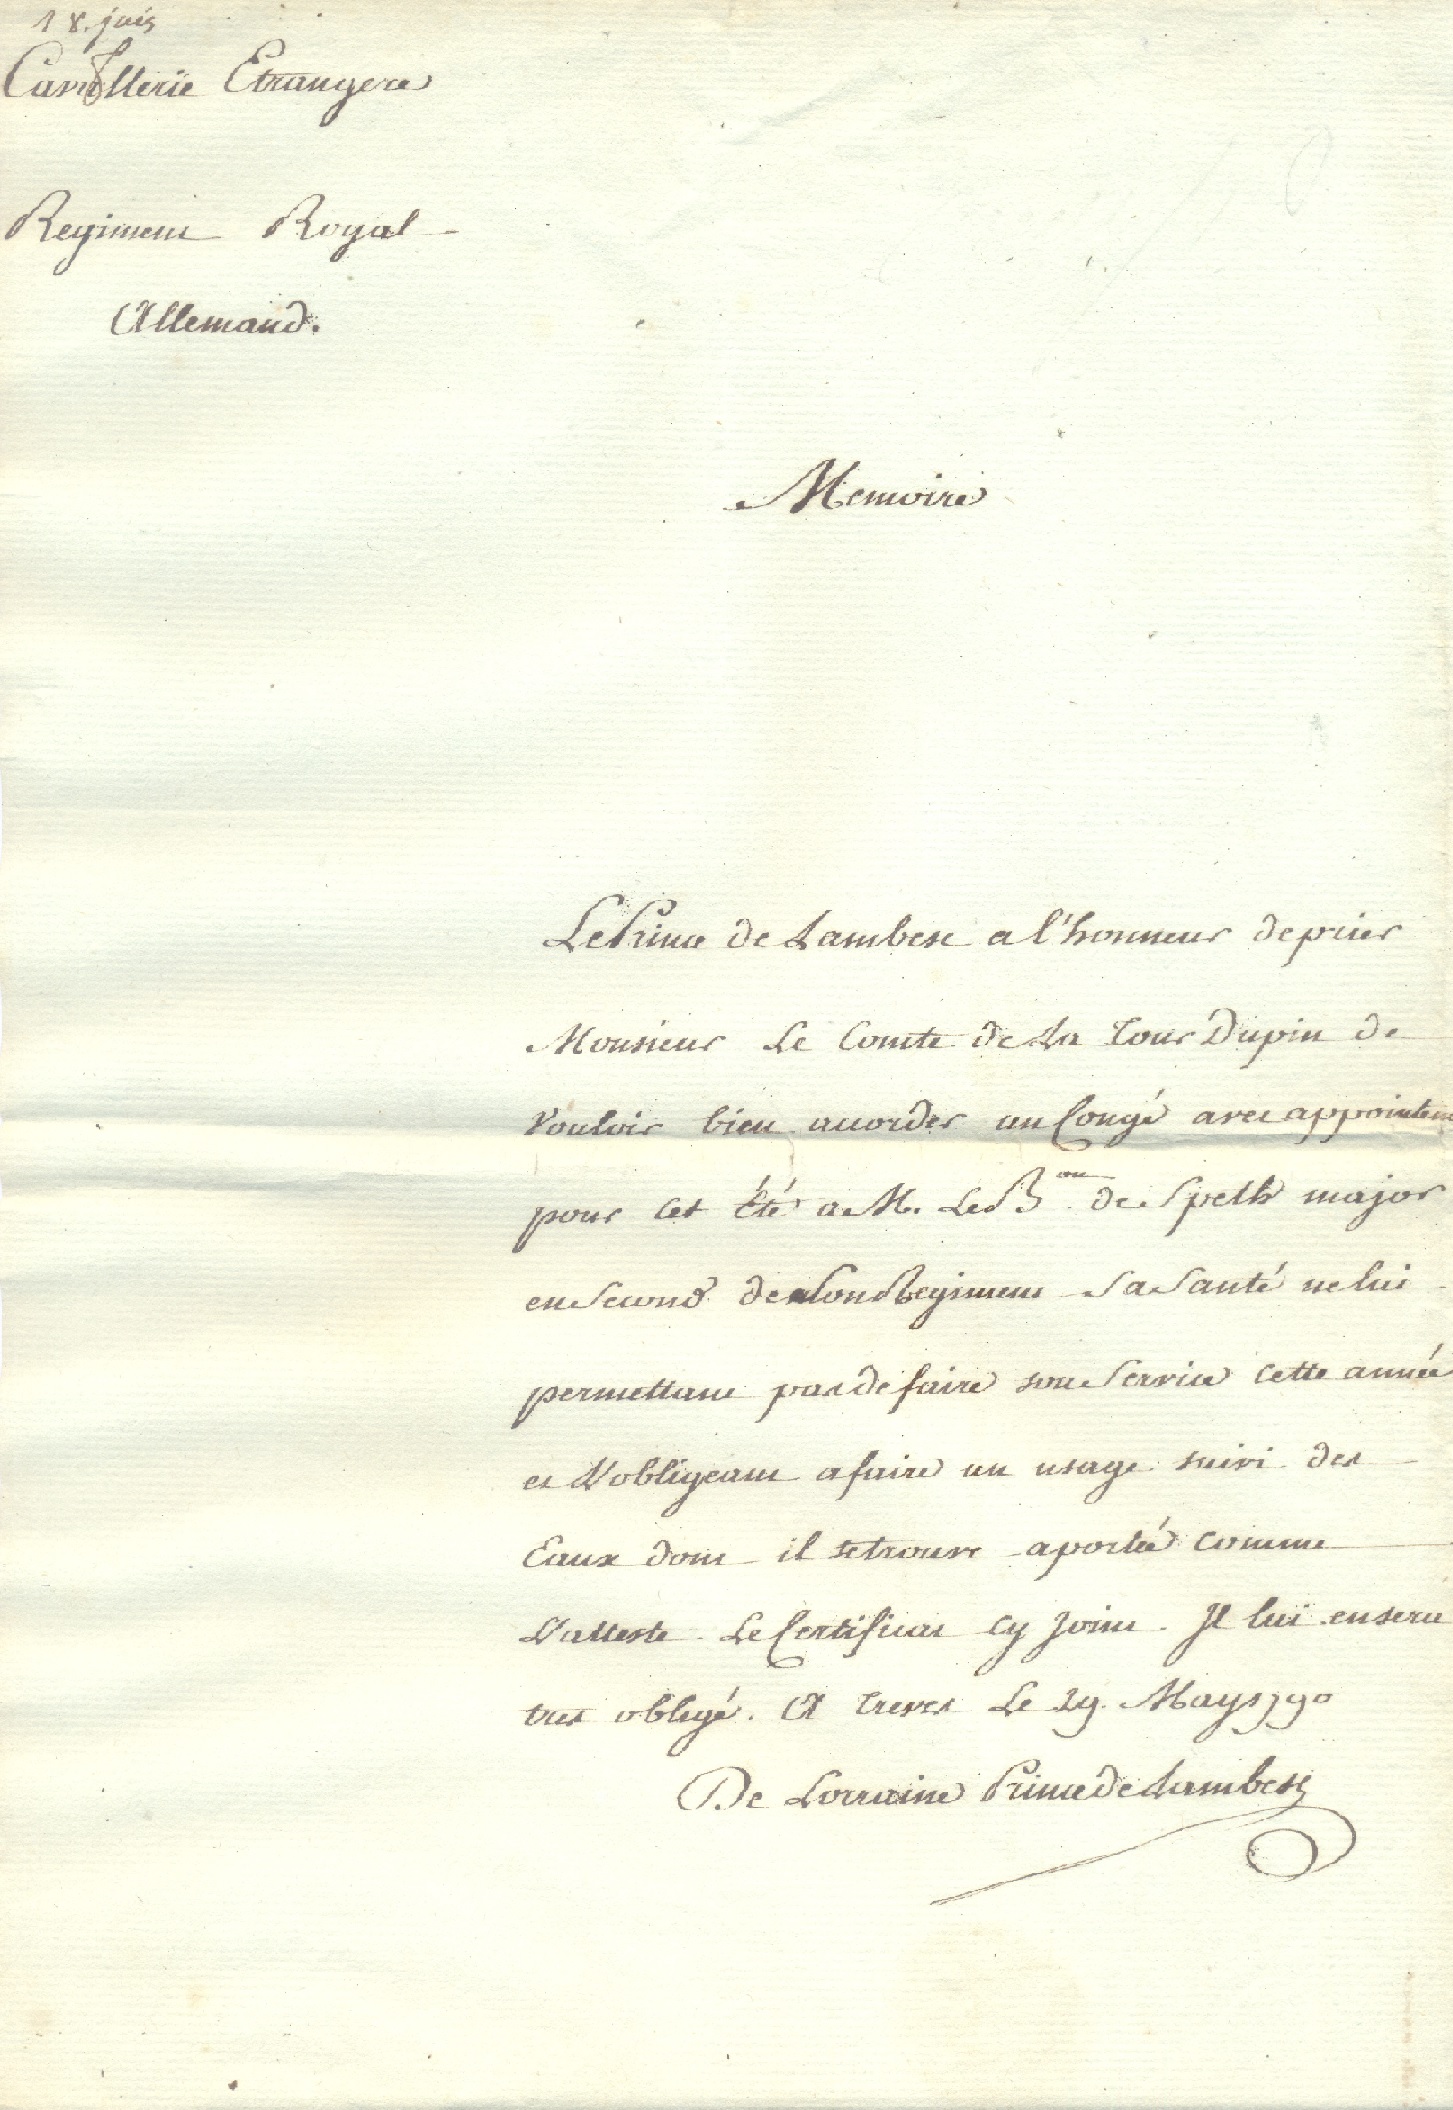 18. juin
Cavallerie Etrangere
Regiment Royal
Allemand.
Memoire
Le Prince de Lambesc a l'honneur de prier
Monsieur Le Comte de La Tour Dupin de
Vouloir bien accorder un Congé avec appointem
pour cet Été a M. Le Bon de Speth major
en Second de Son Regiment Sa Santé ne lui
permettant pas de faire son Service cette année
et l'obligeant a faire un usage suivi des
Eaux dont il se trouve a portée comme
l'atteste Le Certificat cy joint. Il lui en sera
tres obligé. A Treves Le 29. May 1790
De Lorraine Prince de Lambesc